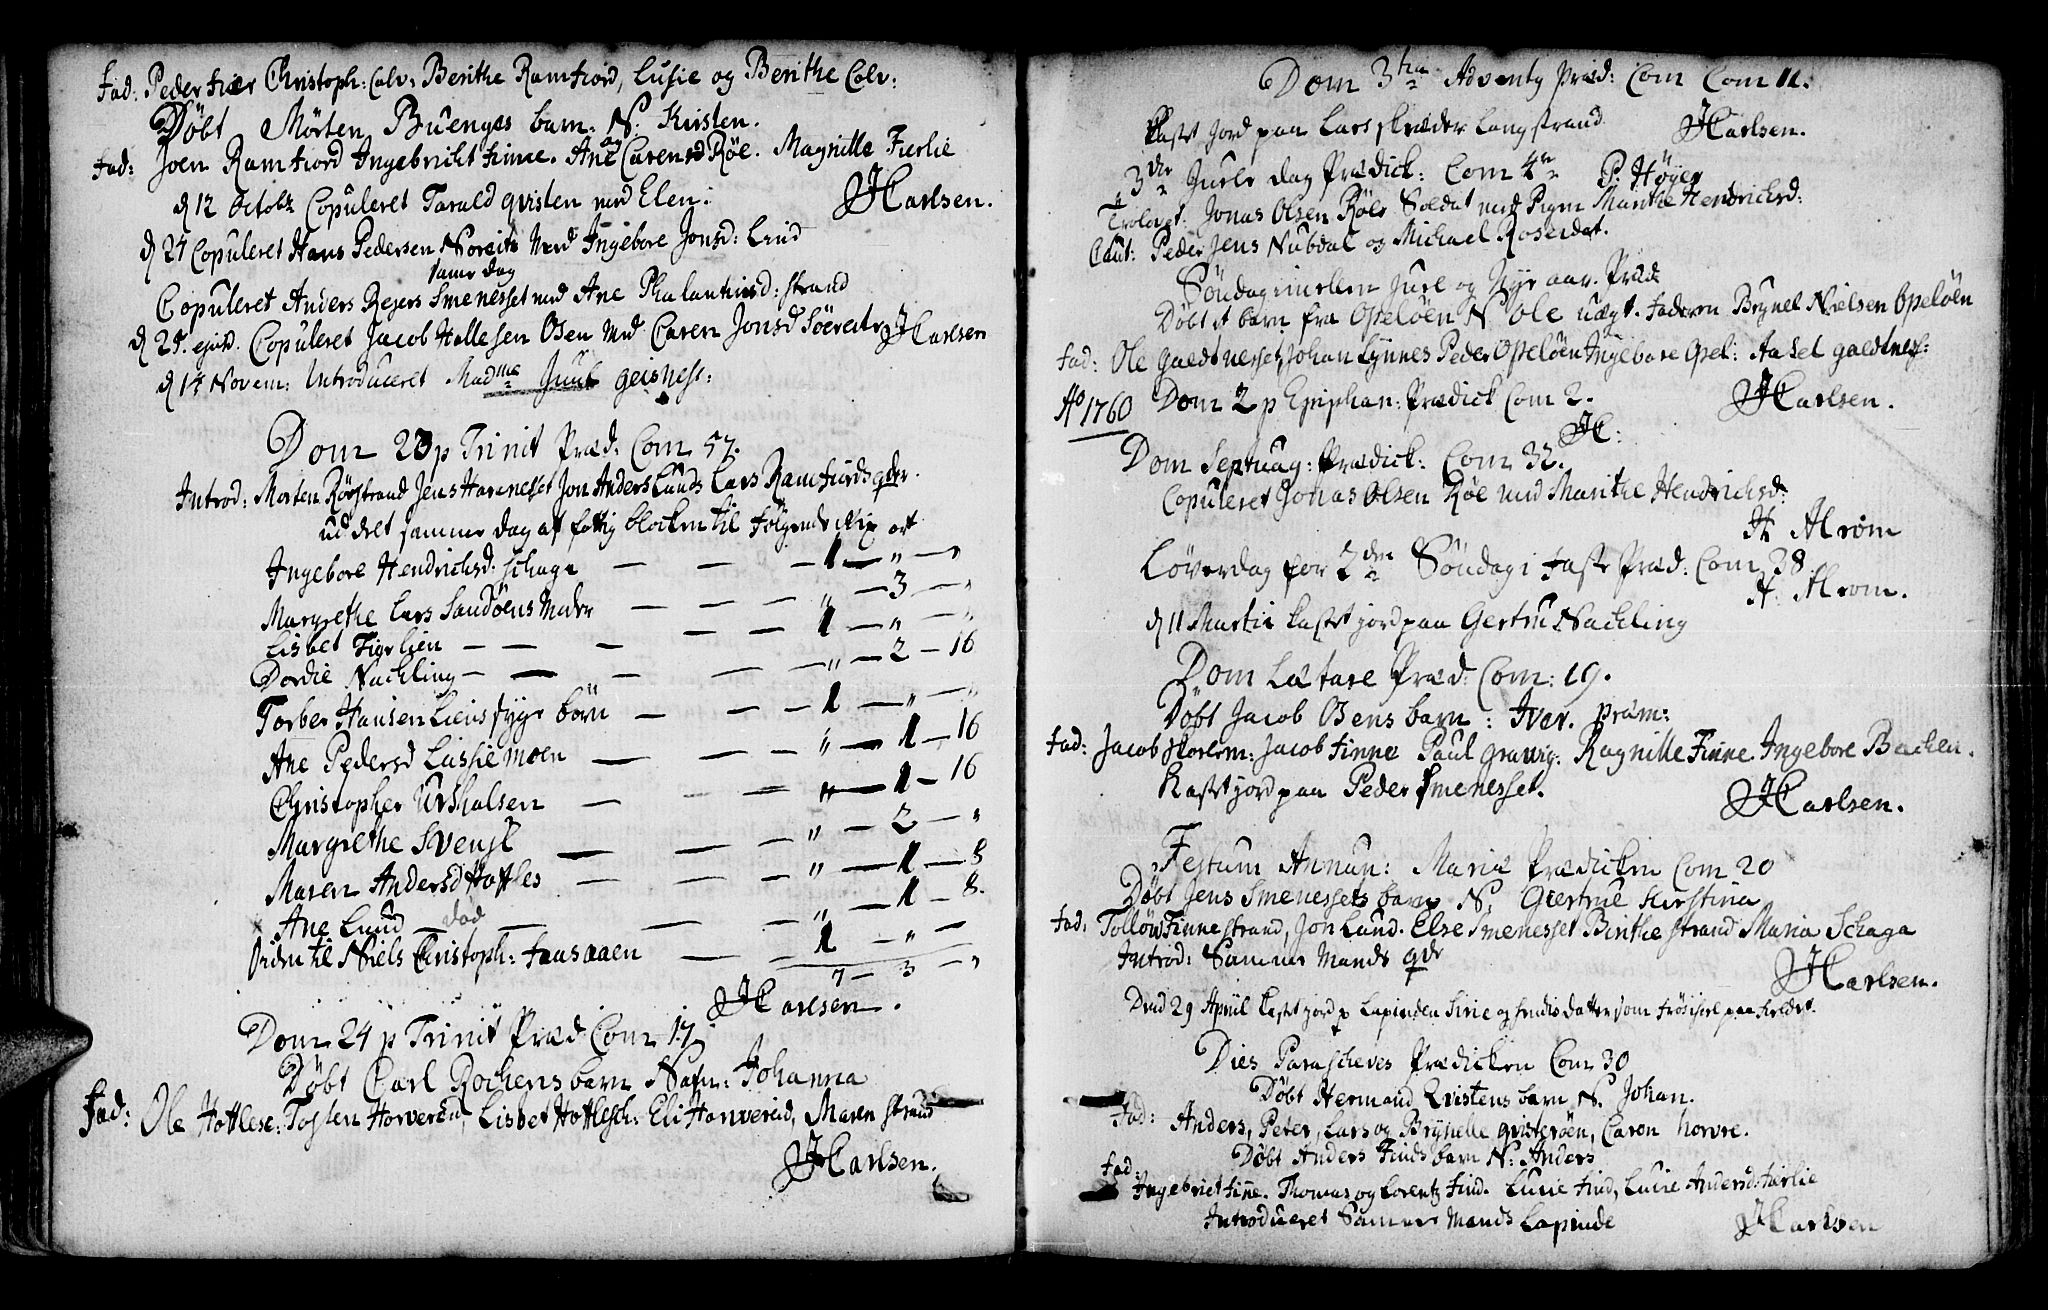 Fad: Peder Fiær Christoph: Calv: Berithe Ramfiord, Lusie og Berithe Calv:
Døbt Mörten Buenges barn. N. Kirsten.
Fad: Joen Ramfiord Ingebricht Finne. Ane og Caren Røe. Magnille Fierlie
d 12 Octobr Copuleret Tarald Qvisten med Elen:
JHCarlsen.
d 24 Copuleret Hans Pedersen Soreite Med Ingebore Jonsd: Lund
samme dag
Copuleret Anders Rejers Smenesset med Ane Phalantinsd: Strand
d 25. ejusd. Copuleret Jacob Hallesen Osen Med Caren Jonsd Söereite JHCarlsen
d 14 Novem: Introduceret Madme Juul geisness:
Dom 23 p Trinit Præd: Com 57.
Introd: Morten Rörstrand Jens Haranesset Jon Anders Lunds Lars Ramfiords qder.
ud deelt samme dag af fattig blocken til Følgende Rix ort
Ingebore Hendrichsd: Schage — — — 1 — " — "
Margrethe Lars Sandöens Moder — — — " — 3 — "
Lisbet Fierlien — — — 1 — " — "
Dordie Nachling — — — " — 2 — 16
Torber Hansen Liens syge börn — — — 1 — " — "
Ane Pedersd Lassiemoen — — — " — 1 — 16
Christopher Urshalsen — — — " — 1 — 16
Margrethe Svensk — — — " — 2 — "
Maren Andersd Hottles — — — " — 1 — 8
Ane Lund — död — — — " — 1 — 8.
Viden til Niels Christoph: Faasaaen — — 1 — " —
7 — 3 — "
JHCarlsen.
Dom 24 p Trinit Præd Com 17
Döbt Carl Rochens barn Nafn: Johanna
Fad: Ole Hottlese: Tosten Horverëid, Lisbet Hottlesch: Eli Harverëid, Maren Strand
JHCarlsen.
Dom 3tia Adventg Præd: Com Com 11.
Kastet jord paa Lars skræder Langstrand
JHCarlsen.
3die Juele dag Prædick: Com 4re P. Höyer
Troloved: Jonas Olsen Röls Soldat med Pigen Marithe Hendrichsd:
Caut: Peder Jens Nubdal og Michael Roserdat.
Söndag imellem Juel og Nye aar. Præd
Döbt et barn fra Opelöen N Ole uægt. Faderen Brynel Nielsen Opelöen
Fad: Ole Galdtnesset, Johan Lynnes Peder Opelöen Ingebore Opel: Aasel galdtness:
Ao 1760 Dom 2 p Epiphan: Prædick Com 2.
JHCarlsen.
JHC:
Dom Septuag: Prædick: Com 32.
Copuleret Jonas Olsen Röe med Marithe Hendrichsd:
H Alrom
Löverdag for 2den Söndag i Faste Præd: Com 38
H. Alrom.
d 11 Martii kastet jord paa Gertru Nachling
Dom Lætare Præd: Com: 19.
Döbt Jacob Osens barn: Iver. præm:
Fad: Jacob Skorem: Jacob Finne Paul Gravig. Ragnille Finne Ingebore Bachen.
Kastet jord paa Peder Smenesset.
JHCarlsen.
Festum Annun: Mariæ Prædicken Com 20
Döbt Jens Smenessets barn N. Giertrue Kirstina
Fad: Tollöw Finnestrand, Jon Lund. Else Smenesset Berithe Strand Maria Schaga
Introd: Samme Mands qde
JHCarlsen.
Dend 29 Apriil kastet jord p Lapinden Sirie og hendis datter som Frös ihiel paa Fieldet.
Dies Parascheves Prædicken Com 30
Döbt Hermand Qvistens barn N. Johan.
Fad: Anders, Peter, Lars og Brynelle qvisteröen, Caren horvre.
Döbt Anders Finds barn N: Anders
Fad:
Ingebrict Finne. Thomas og Lorentz Find. Lusie Find, Lusie Andersd: Fierlie
Introduceret Samme Mands Lapinde
JHCarlsen